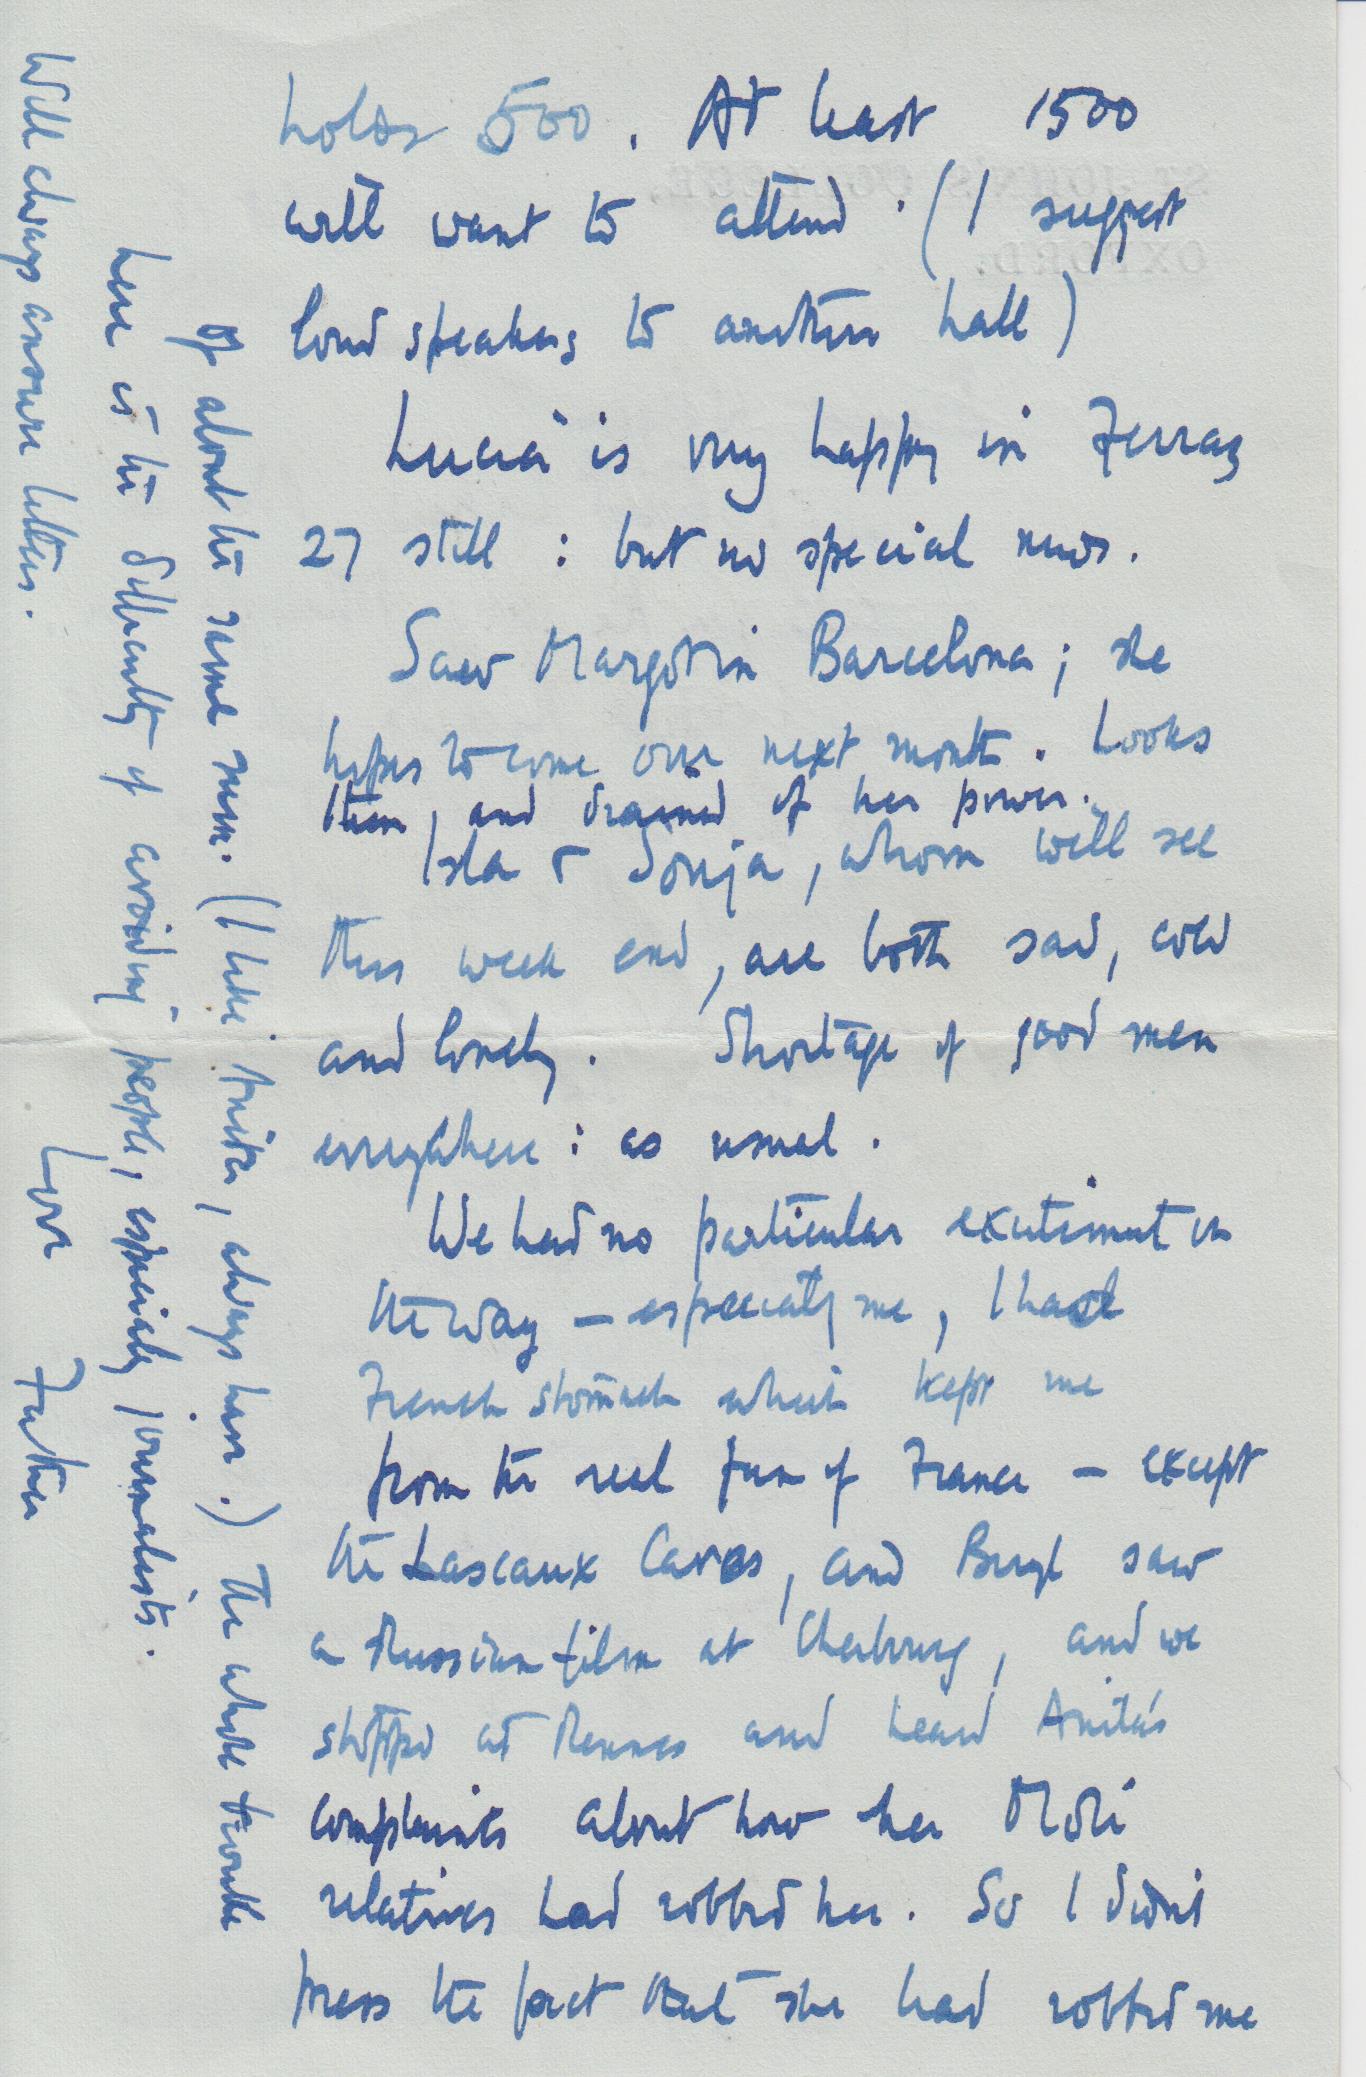 holds 500. At least 1500
will want to attend. (I suggest
loud speakers to another hall)
Lucia is very happy in Terraz
27 still: but no special news.
Saw Margot in Barcelona; she
hopes to come over next month. Looks
thin, and drained of her power.
Isla & Sonja, whom will see
this week end, are both sad, cold
and lonely. Shortage of good men
everywhere: as usual.
We had no particular excitement on
the way – especially me, I had
French stomach which kept me
from the real fun of France – except
the Lascaux Caves, and Beryl saw
a Russian film at Cherbourg, and we
stopped at Rennes and heard Anita's
complaints about how her
relatives had robbed her. So I didn't
press the fact that she had robbed me
of about the same sum. (I like Anita, always have.) The whole trouble
here is the difficulty of avoiding people, especially journalists.
Will always answer letters.
Love Father
ST JOHN'S COLLEGE,
OXFORD.